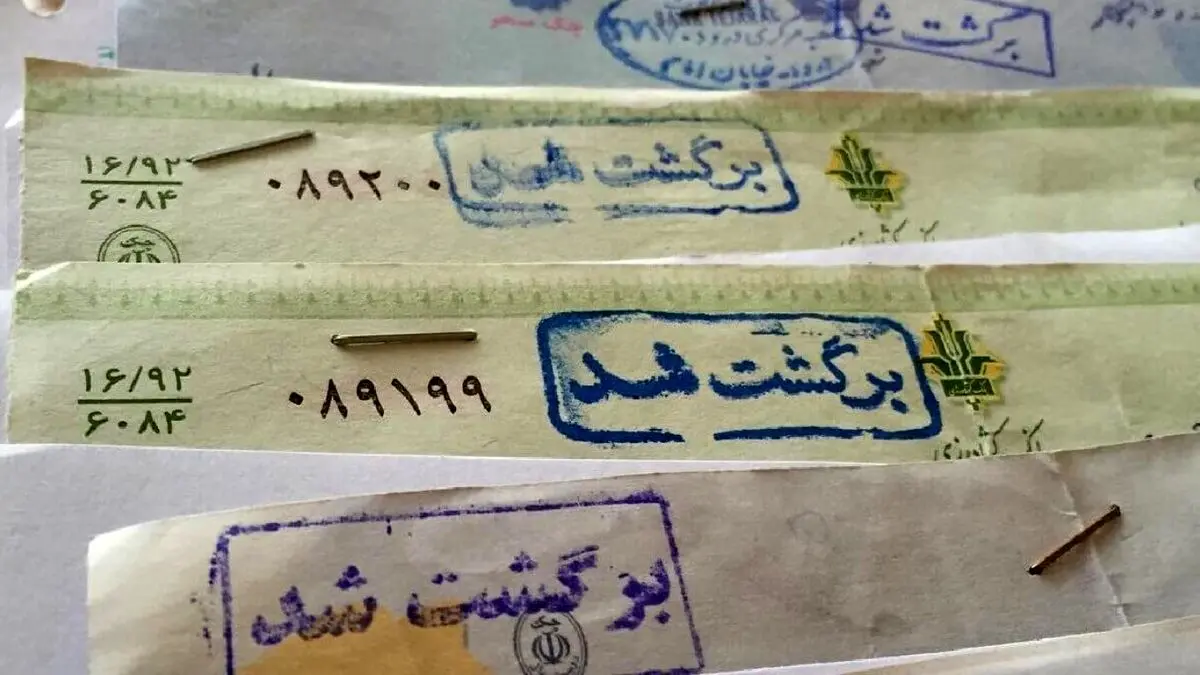 برگشت شد
برگشت شد
۰۸۹۲۰۰
۱۶/۹۲
۶۰۸۴
برگشت شد
۰۸۹۱۹۹
۱۶/۹۲
۶۰۸۴
بانک کشاورزی
برگشت شد